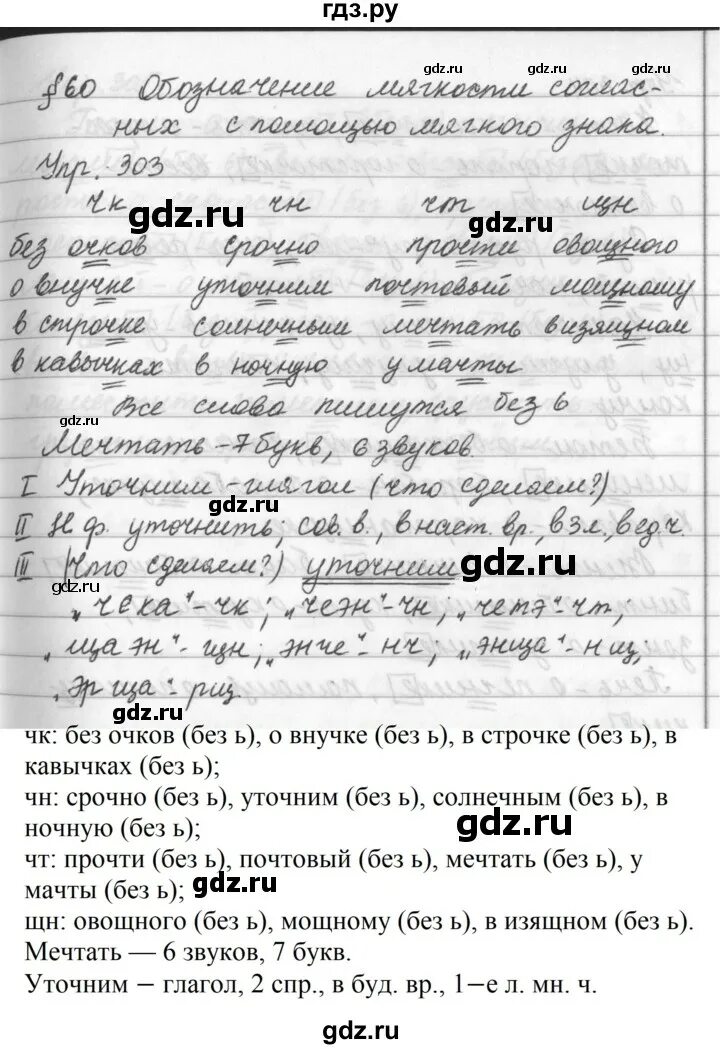 гдз.ру
§ 60 Обозначение мягкости соглас-
ных с помощью мягкого знака.
Упр. 303
чк чн чт щн
без очков срочно прочти овощного
о внучке уточним почтовый мощному
в строчке солнечным мечтать в изящном
в кавычках в ночную у мачты
Все слова пишутся без ь
Мечтать - 7 букв, 6 звуков.
I Уточним - глагол (что сделаем?)
II Н.ф. уточнить, сов. в., в наст. вр., в 3 л., в ед. ч.
III (Что сделаем?) уточним
"чека" - чк; "чеэн" - чн; "четэ" - чт,
"ща эн" - щн; "энче" - нч; "энща" - нщ,
"эр ща" - рщ.
чк: без очков (без ь), о внучке (без ь), в строчке (без ь), в
кавычках (без ь);
чн: срочно (без ь), уточним (без ь), солнечным (без ь), в
ночную (без ь);
чт: прочти (без ь), почтовый (без ь), мечтать (без ь), у
мачты (без ь);
щн: овощного (без ь), мощному (без ь), в изящном (без ь).
Мечтать — 6 звуков, 7 букв.
Уточним − глагол, 2 спр., в буд. вр., 1−е л. мн. ч.
gdz.ru